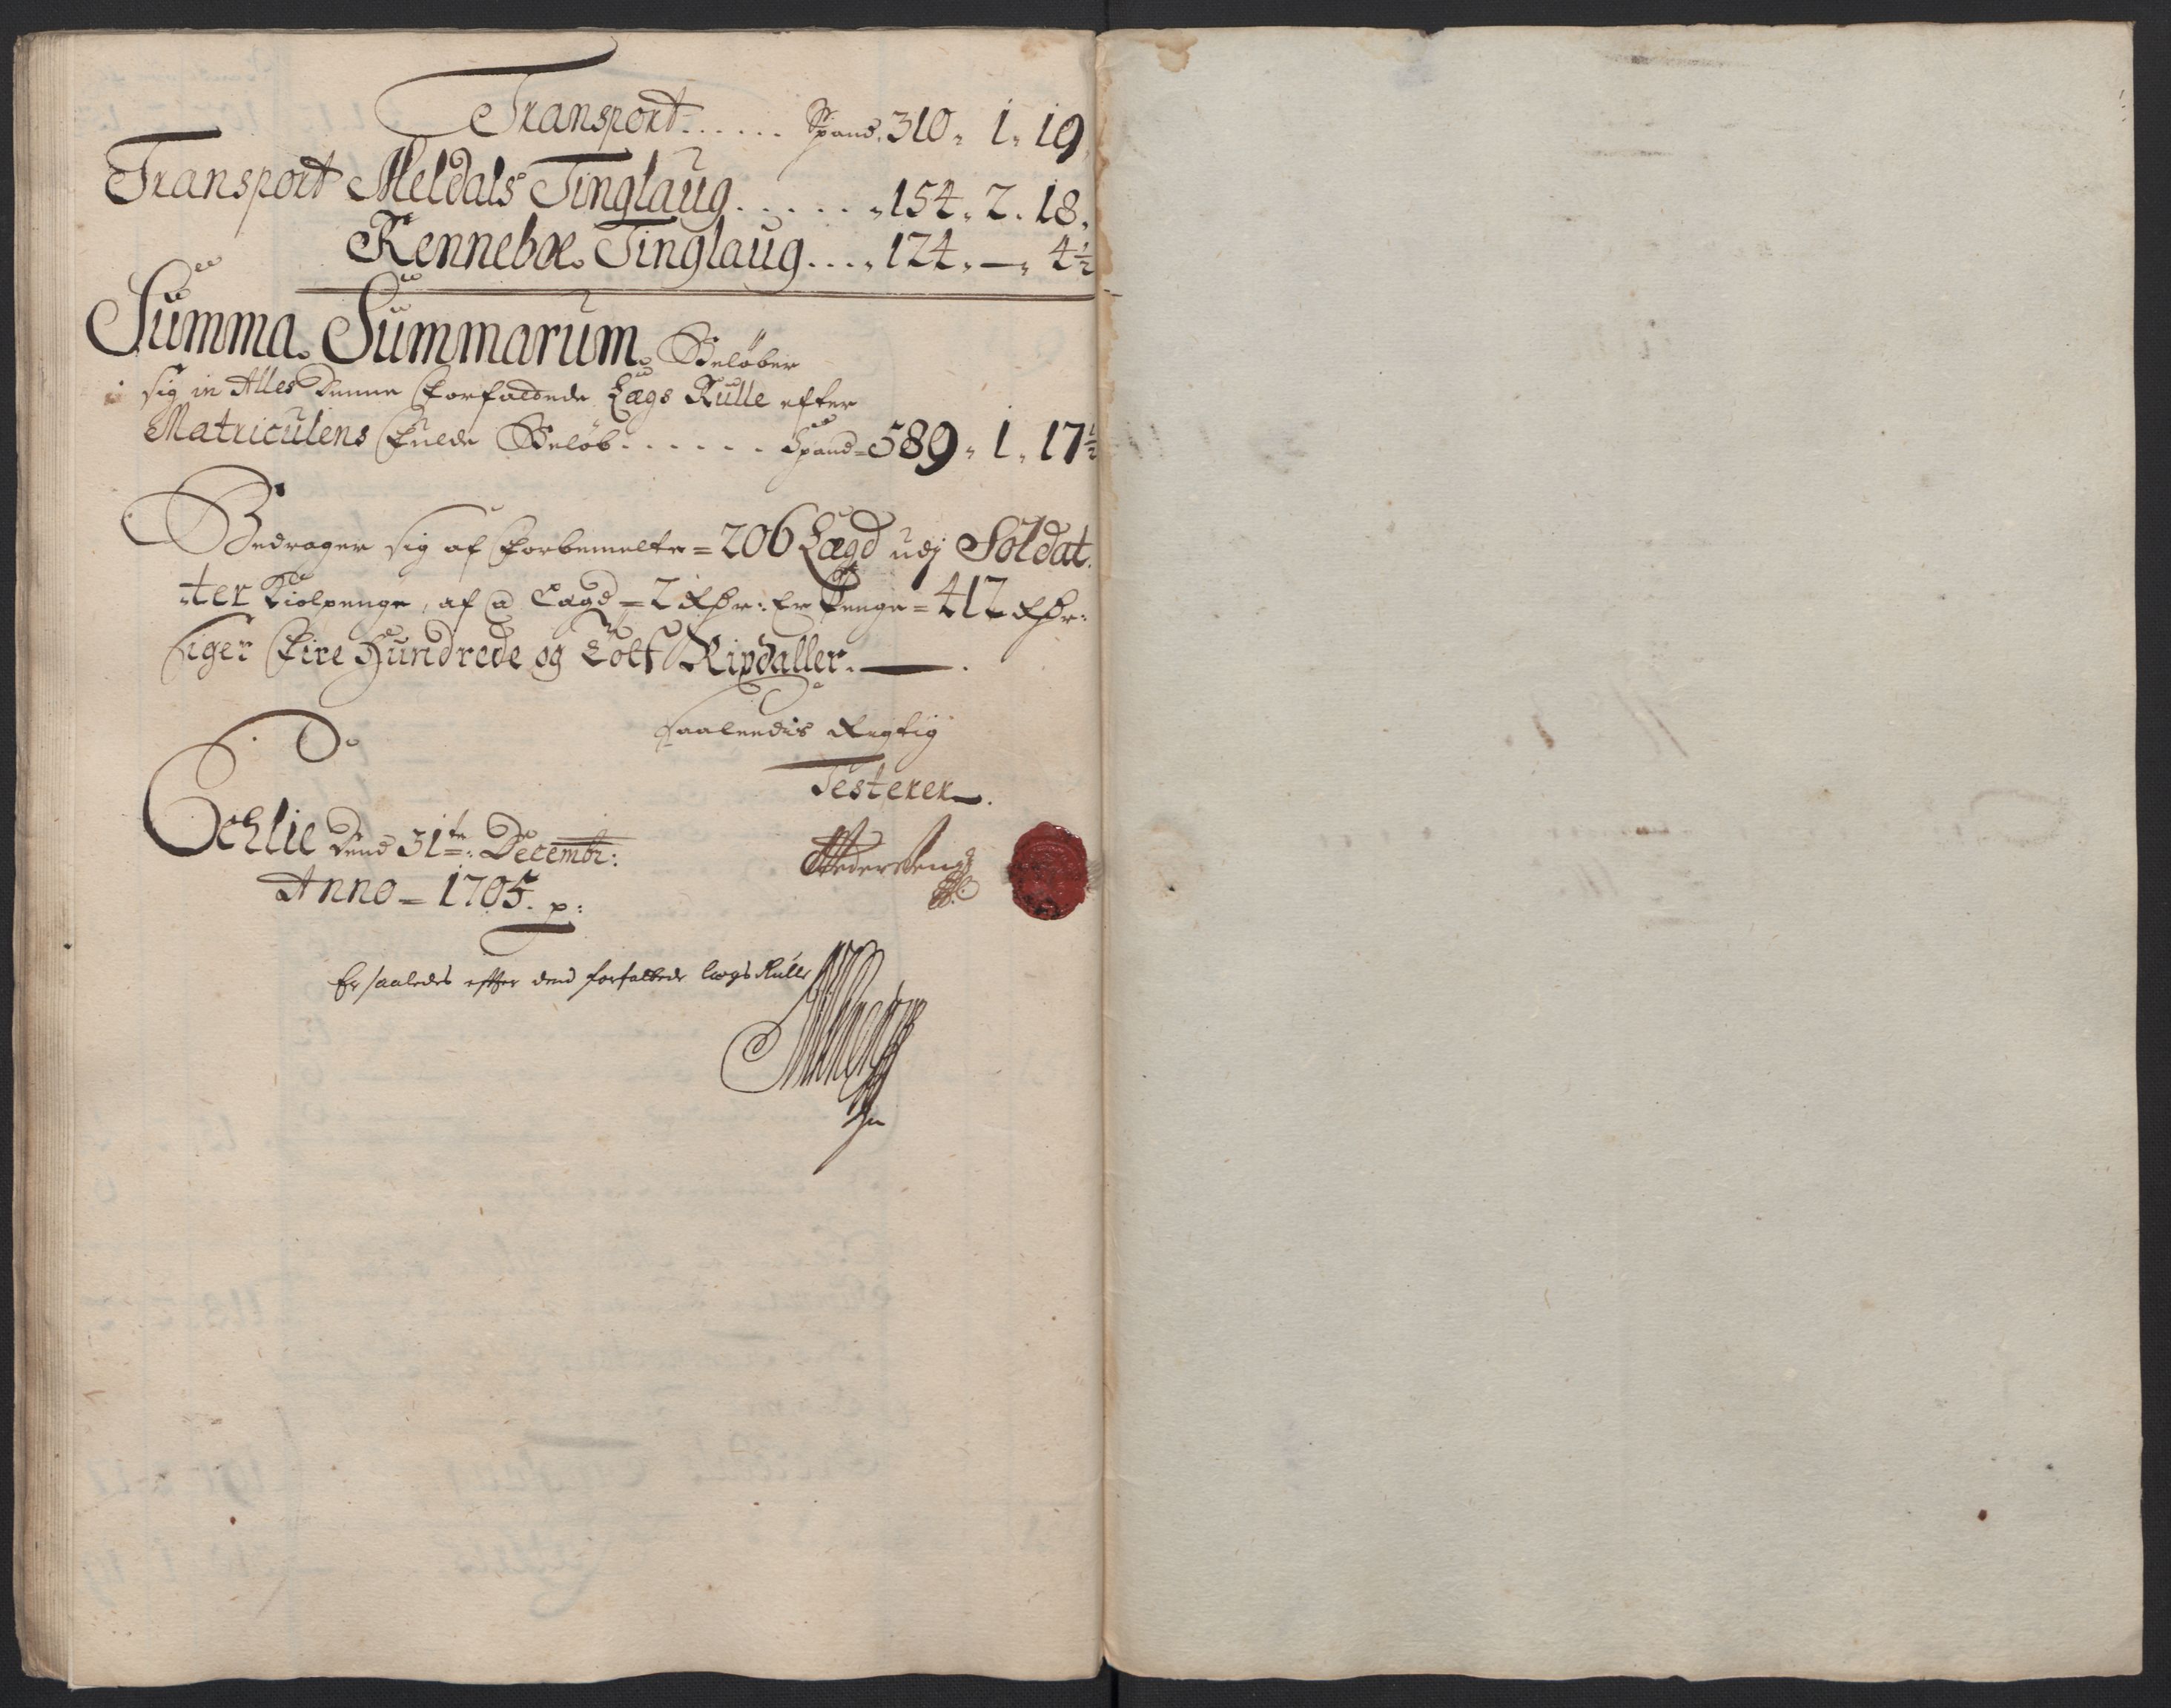 Transport - - - - - - Spand. 310. 1. 19.
Transport Meldals Tinglaug. - - - - - 154. 2. 18.
Renneboe Tinglaug. . . . 124. — 4½
Summa Summarum. Beløber
sig in Alles denne forfattede Lægs Rulle efter
Matriculens fulde Beløb. - - - - - - Spand = 589. 1. 17½
Bedrager sig af forbemelte = 206 Lægd udj Soldat
ter Kiolpenge, af @ Lægd = 2 Rdr: Er Penge = 412 Rdr:
siger Fire Hundrede og Tolf Rixdaller. —
Saaledis Rigtig
Testerer.
dend 31te: Decembr:
Anno = 1705. p:
Er saaledes efter dend forfattede Lægs Rulle